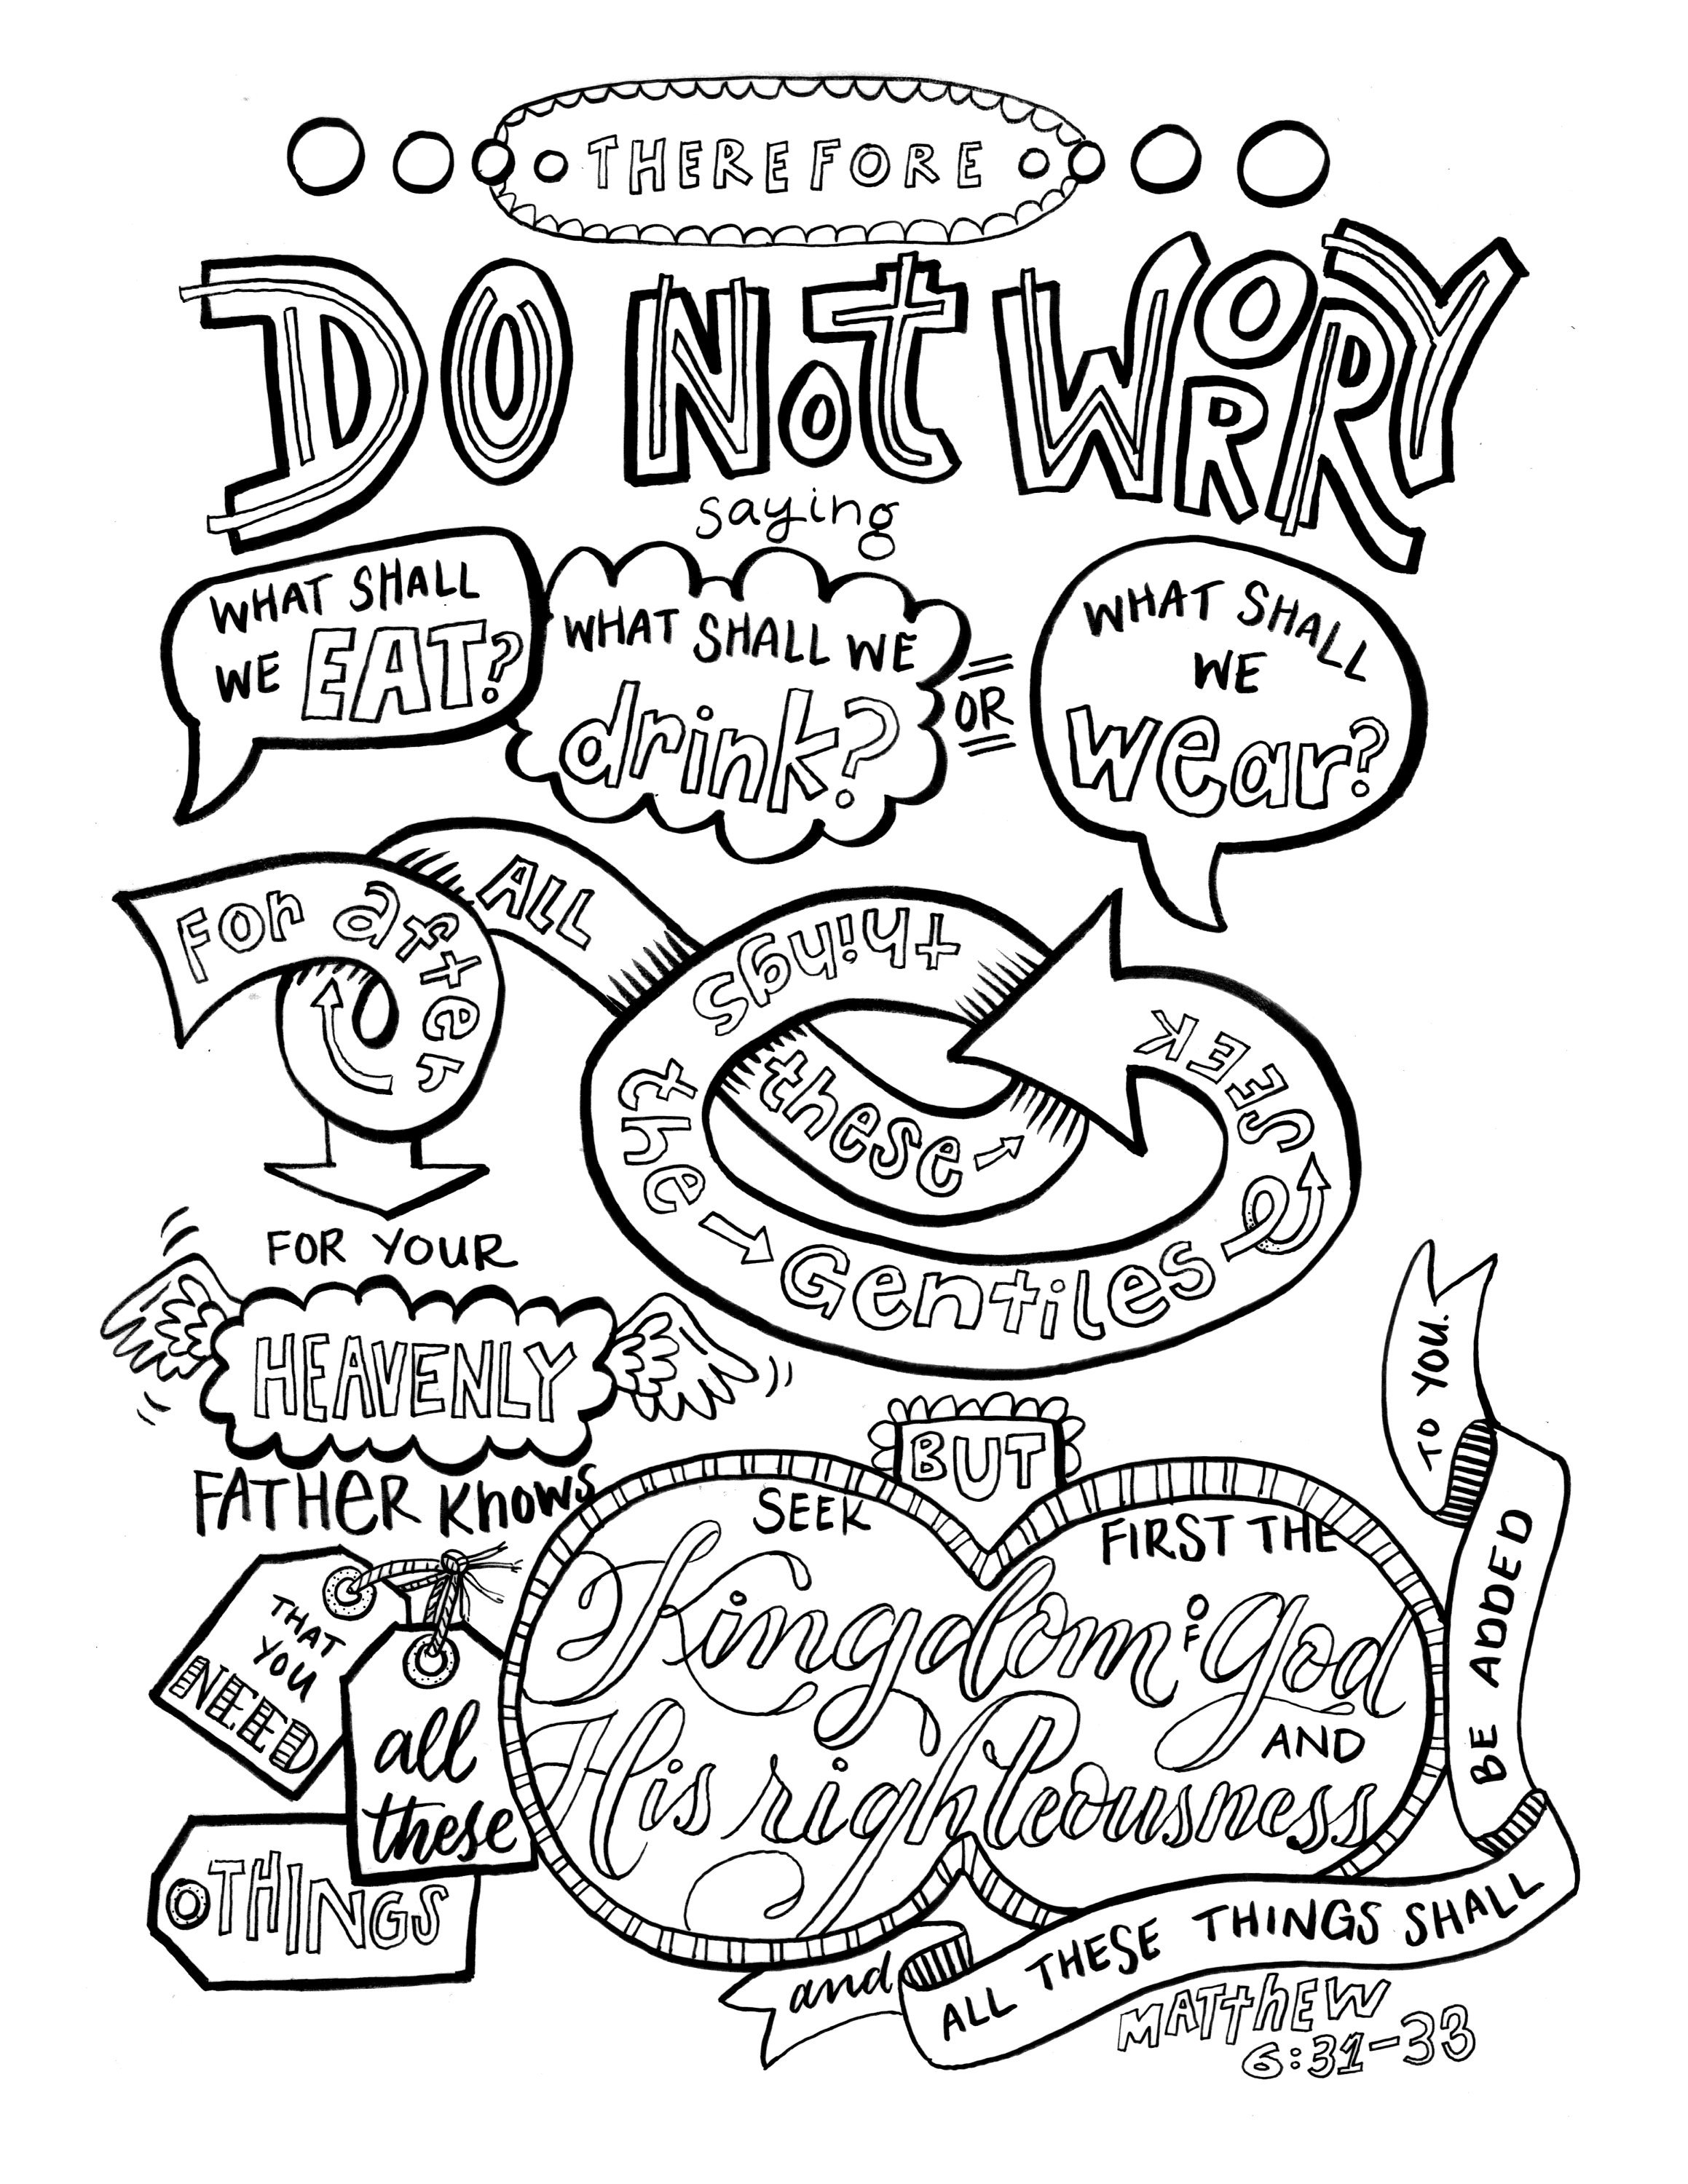 THEREFORE
DO NOT WORRY
saying
WHAT SHALL
WE EAT?
WHAT SHALL WE
drink?
OR
WHAT SHALL
WE
wear?
For after
ALL
these
things
the Gentiles
SEEK
FOR YOUR
HEAVENLY
FATHER KNOWS
THAT
YOU
NEED
all
these
THINGS
BUT
SEEK
FIRST THE
Kingdom OF God
AND
His righteousness
and
ALL THESE THINGS SHALL
BE ADDED
TO YOU.
MATTHEW
6:31-33